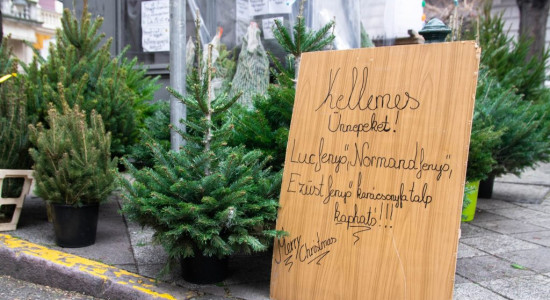 Kellemes
Ünnepeket!
Lucfenyő, Normandfenyő,
Ezüstfenyő karácsonyfatalp
kapható!!!
Merry Christmas